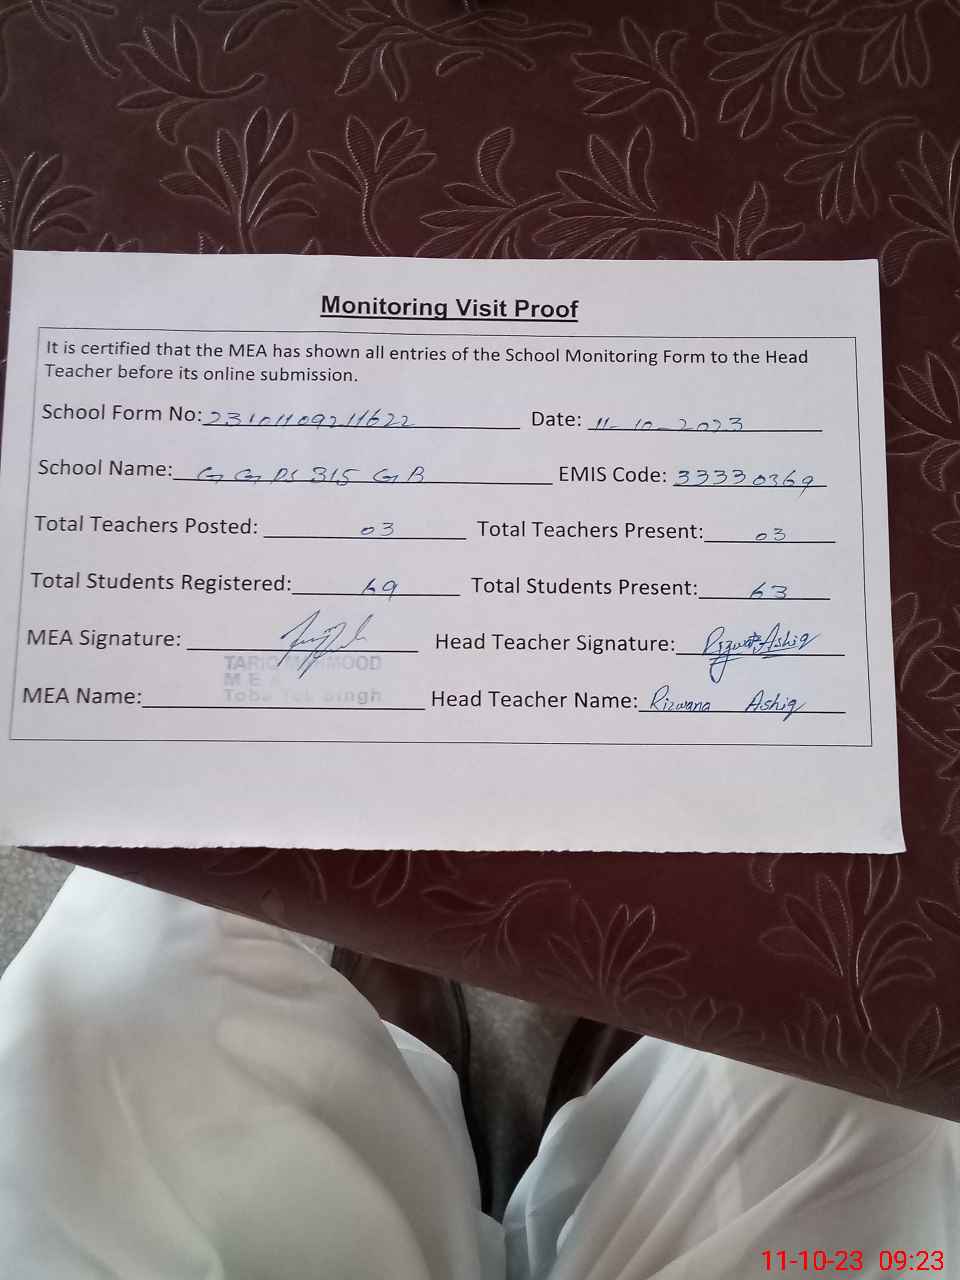 Monitoring Visit Proof
It is certified that the MEA has shown all entries of the School Monitoring Form to the Head
Teacher before its online submission.
School Form No: 23101109211622 Date: 11-10-2023
School Name: G G PS 315 GB EMIS Code: 33330369
Total Teachers Posted: 03 Total Teachers Present: 03
Total Students Registered: 69 Total Students Present: 63
MEA Signature: Head Teacher Signature: Rizwana Ashiq
TARIQ MAHMOOD
M E A
MEA Name: Toba Tek Singh Head Teacher Name: Rizwana Ashiq
11-10-23 09:23